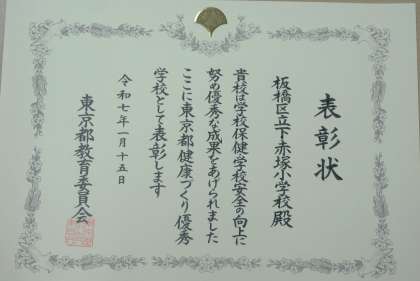 表彰状
板橋区立下赤塚小学校殿
貴校は学校保健学校安全の向上に
努め優秀な成果をあげられました
ここに東京都健康づくり優秀
学校として表彰します
令和七年一月十五日
東京都教育委員会